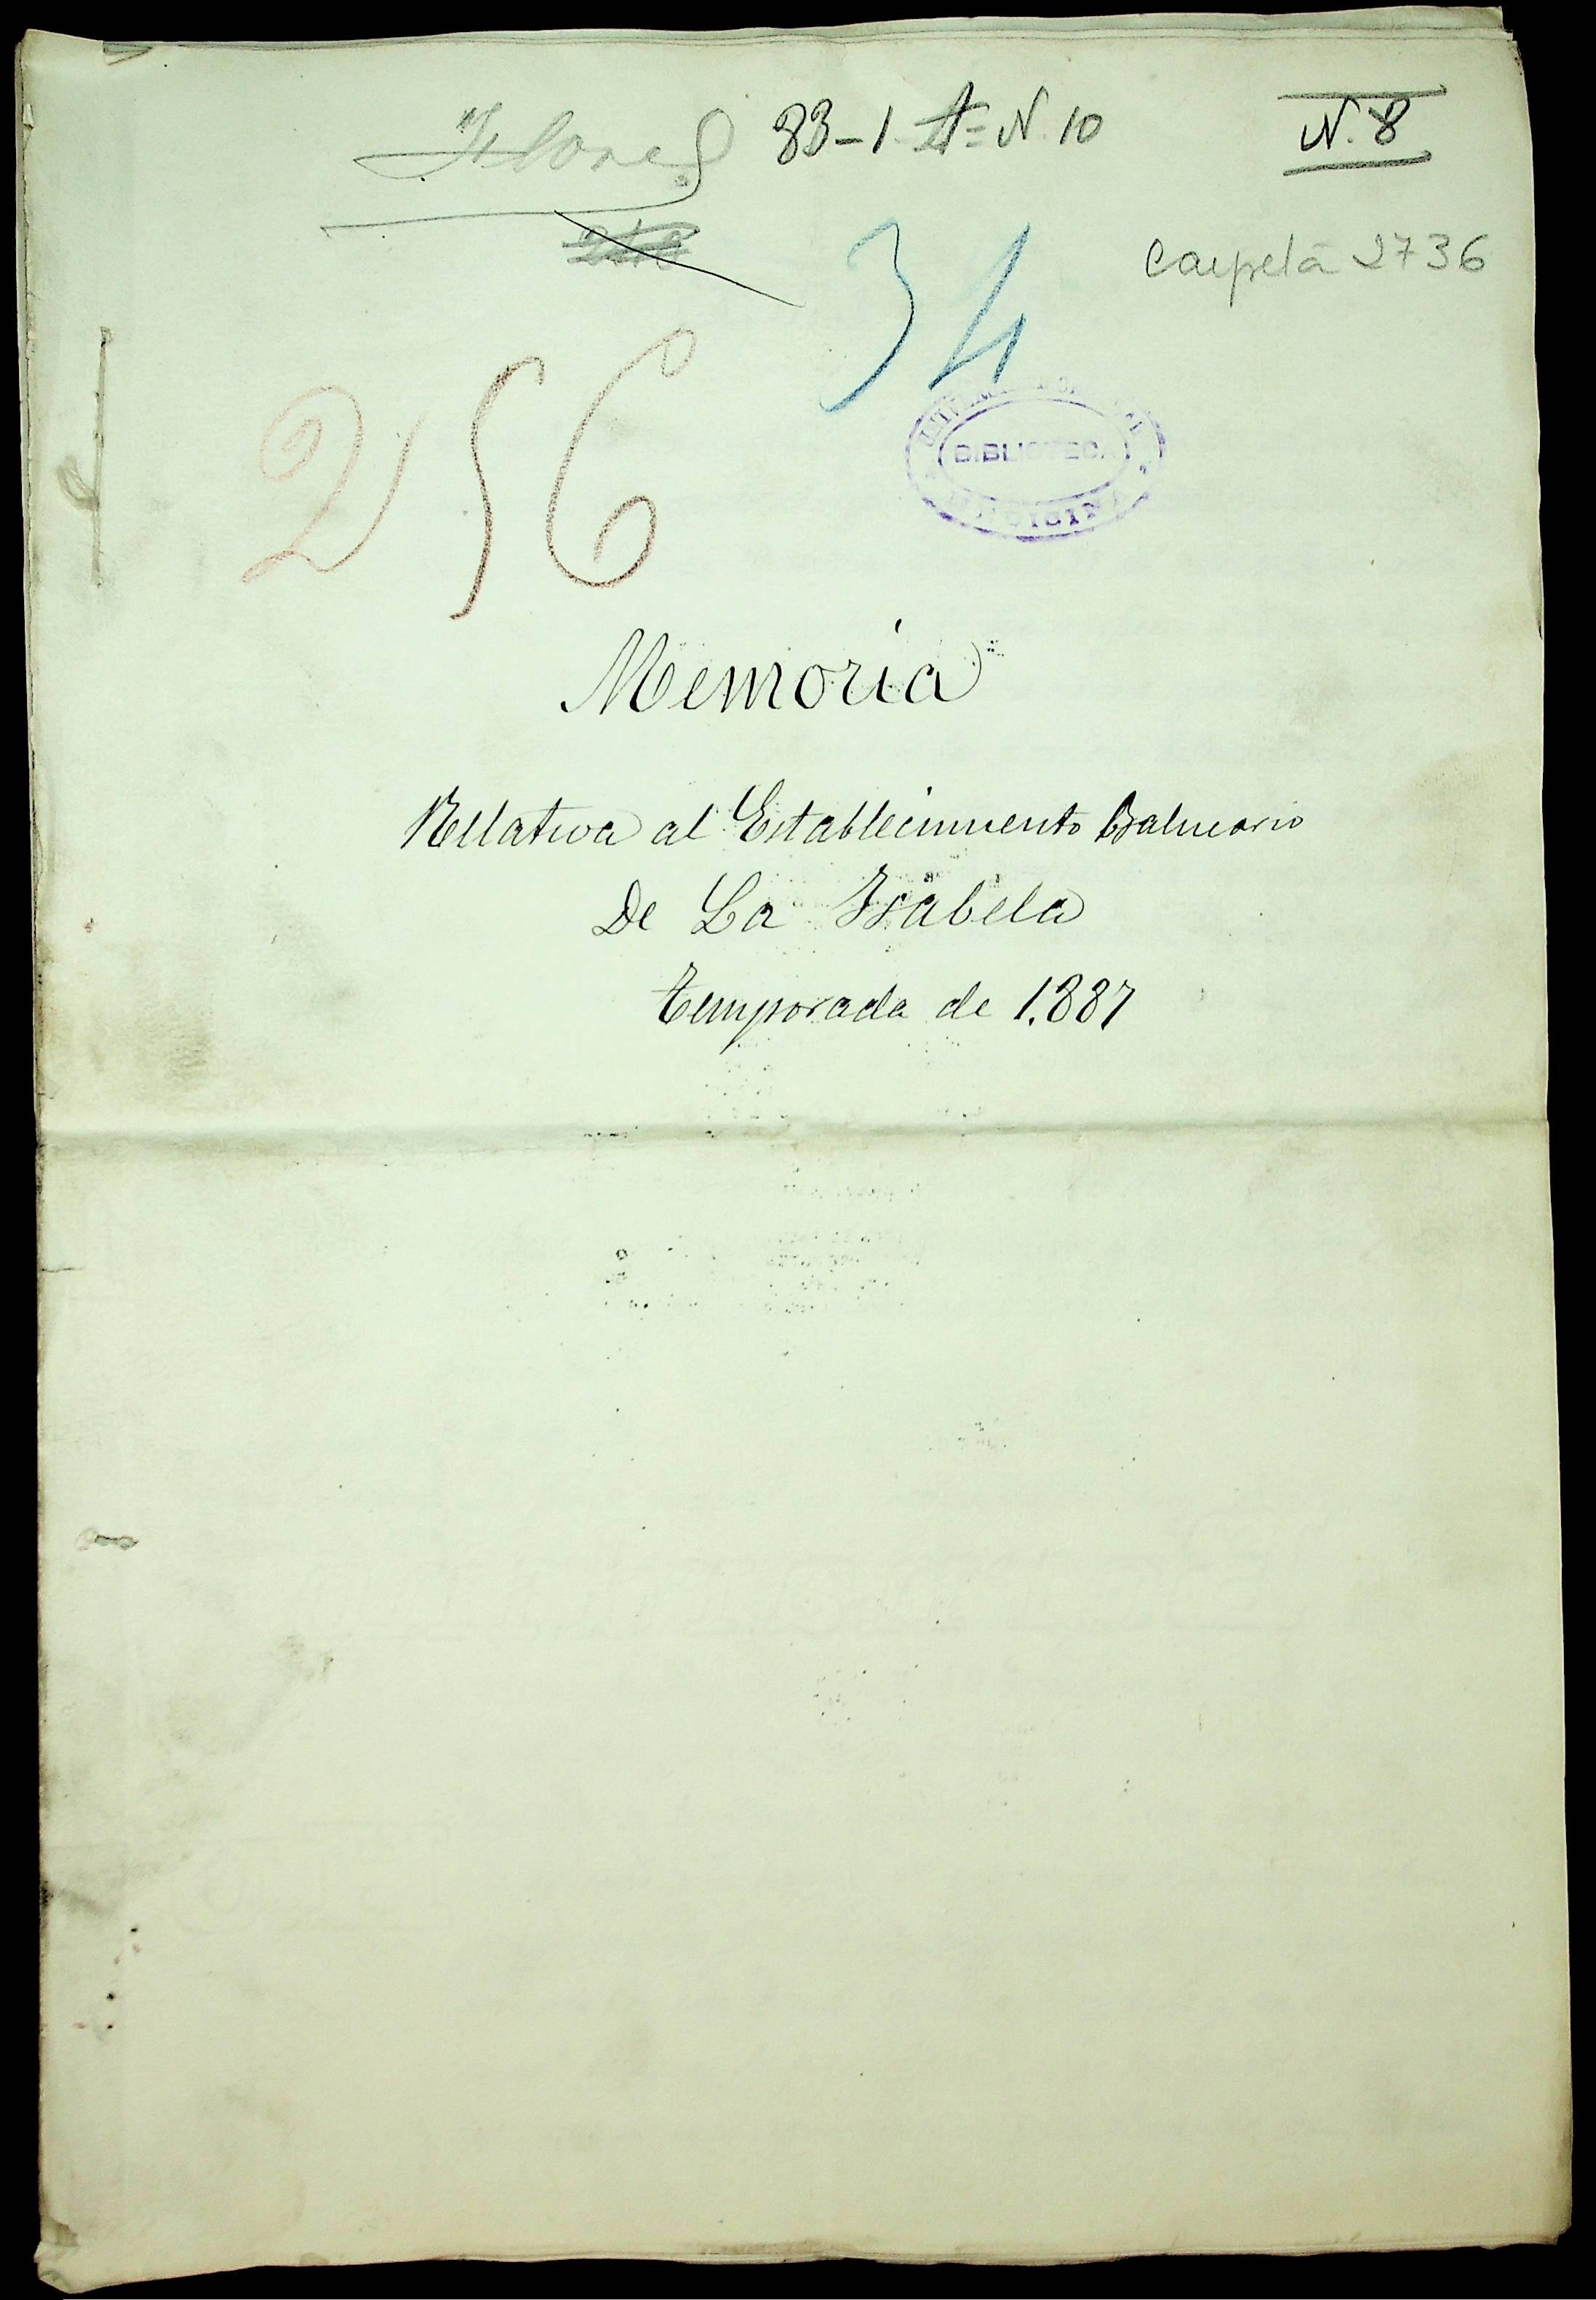 Flores 83-1 A= N. 10
N. 8
Carpeta 2736
34
256
BIBLIOTECA
MEDICINA
Memoria
Rellativa al Establecimiento Balneario
De La Isabela
Temporada de 1.887